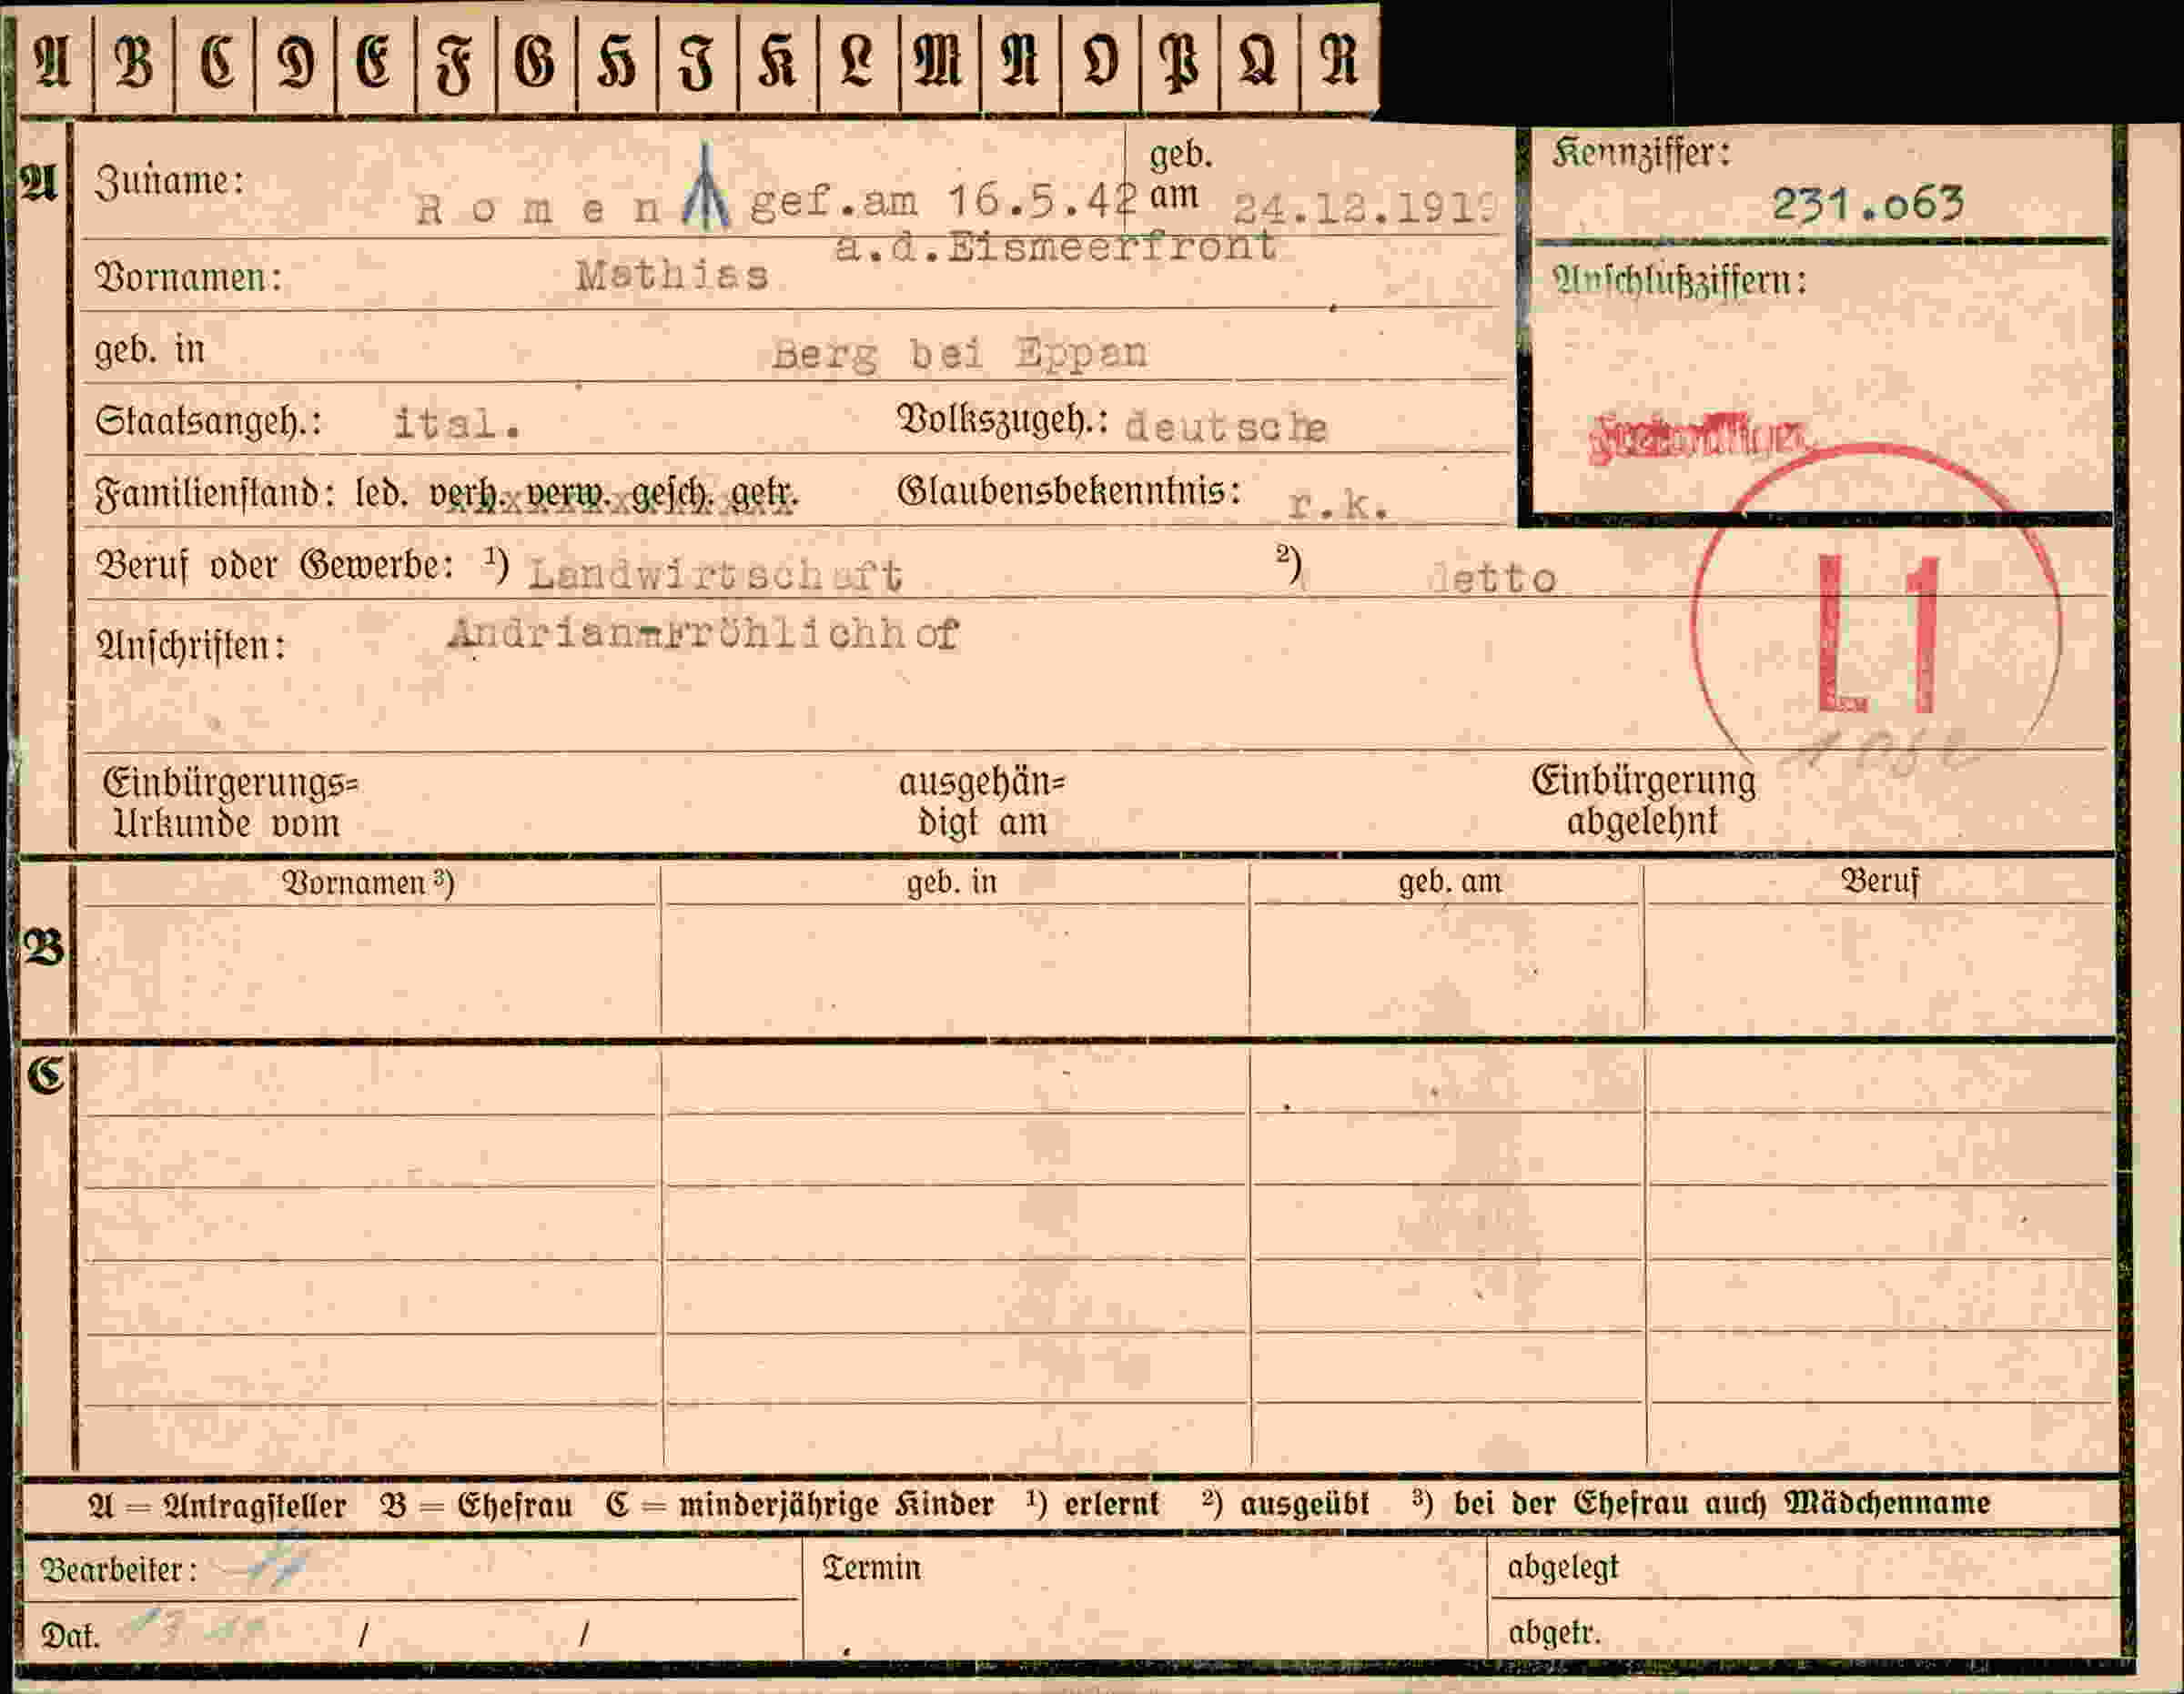 A B C D E F G H I K L M N O P Q R
A Zuname: Romen gef.am 16.5.42 geb. am 24.12.1919
a.d.Eismeerfront
Vornamen: Mathias
geb. in Berg bei Eppan
Staatsangeh.: ital. Volkszugeh.: deutsche
Familienstand: led. verh. verw. gesch. getr. Glaubensbekenntnis: r.k.
Beruf oder Gewerbe: ¹) Landwirtschaft ²) detto
Anschriften: Andrian-Fröhlichhof
Kennziffer:
231.063
Anschlußziffern:
L1
Einbürgerungs=
Urkunde vom
ausgehän=
digt am
Einbürgerung
abgelehnt
B Vornamen ³) geb. in geb. am Beruf
C
A = Antragsteller B = Ehefrau C = minderjährige Kinder ¹) erlernt ²) ausgeübt ³) bei der Ehefrau auch Mädchenname
Bearbeiter: Termin abgelegt
Dat. / / abgetr.